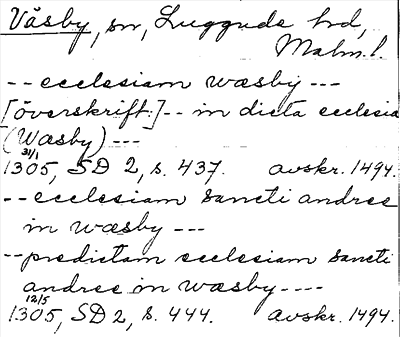 Väsby, sn, Luggude hd,
Malm.l.
-- ecclesiam wæsby ---
[överskrift:]-- in dicta ecclesia
(Wæsby) ---
31/1
1305, SD 2, s. 437. avskr. 1494.
-- ecclesiam sancti andree
in wæsby ---
-- predictam ecclesiam sancti
andree in wæsby ----
12/5
1305, SD 2, s. 444. avskr. 1494.